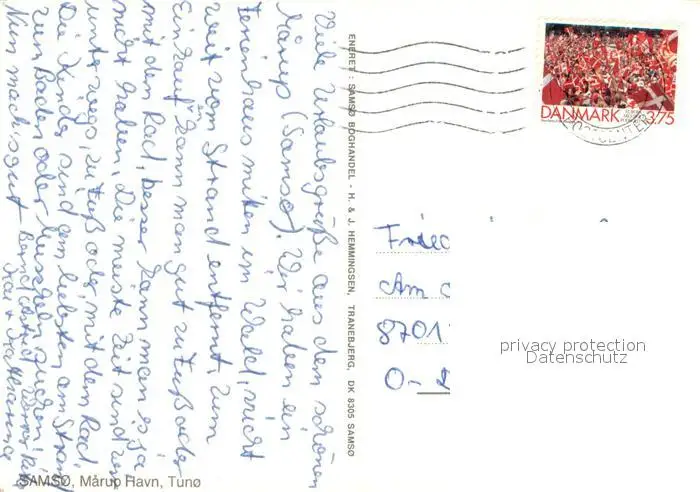 Viele Urlaubsgrüße aus dem schönen
Mårup (Samsø). Wir haben ein
Ferienhaus mitten im Wald, nicht
weit vom Strand entfernt, zum
Einkauf kann man gut zu Fuß oder
mit dem Rad, besser kann man es ja
nicht haben. Die meiste Zeit sind wir
unterwegs, zu Fuß oder mit dem Rad.
Die Kinder sind am liebsten am Strand
zum Baden oder Muscheln suchen.
Nun macht's gut
Kai + Katharina
ENERET: SAMSØ BOGHANDEL - H. & J. HEMMINGSEN, TRANEBJERG, DK 8305 SAMSØ
DANMARK 3.75
Am
8701
O-
privacy protection
Datenschutz
SAMSØ, Mårup Havn, Tunø